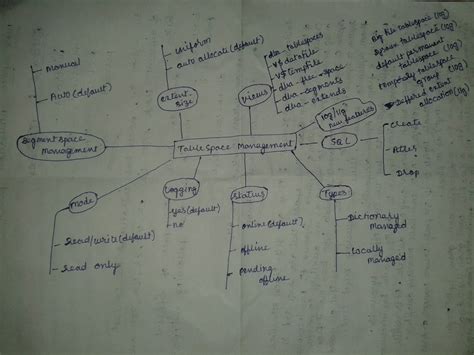 Manual
Auto (default)
Segment space
Management
uniform
auto allocate (default)
extent
size
dba - tablespaces
V$ datafile
V$ tempfile
dba - free - space
dba - segments
dba - extends
views
Big file tablespace (10g)
default permanent
tablespace (10g)
temporary tablespace
group (10g)
Deffered extent
allocation (11g)
10g/11g
new features
SQL
Create
Alter
Drop
TableSpace Management
mode
Read/write (default)
Read only
Logging
yes (default)
no
Status
online (default)
offline
pending
offline
Types
Dictionary
Managed
Locally
Managed